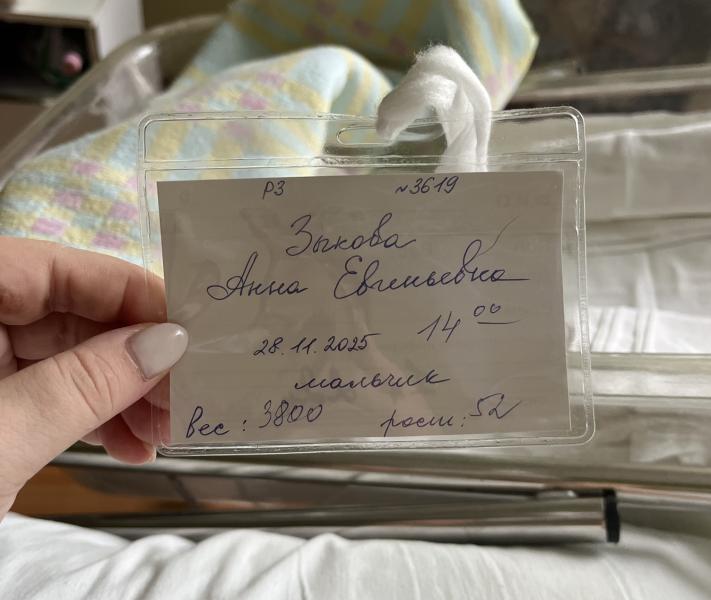 Р3 №3619
Зыкова
Анна Евгеньевна
28.11.2025 14 00
мальчик
вес: 3800 рост: 52